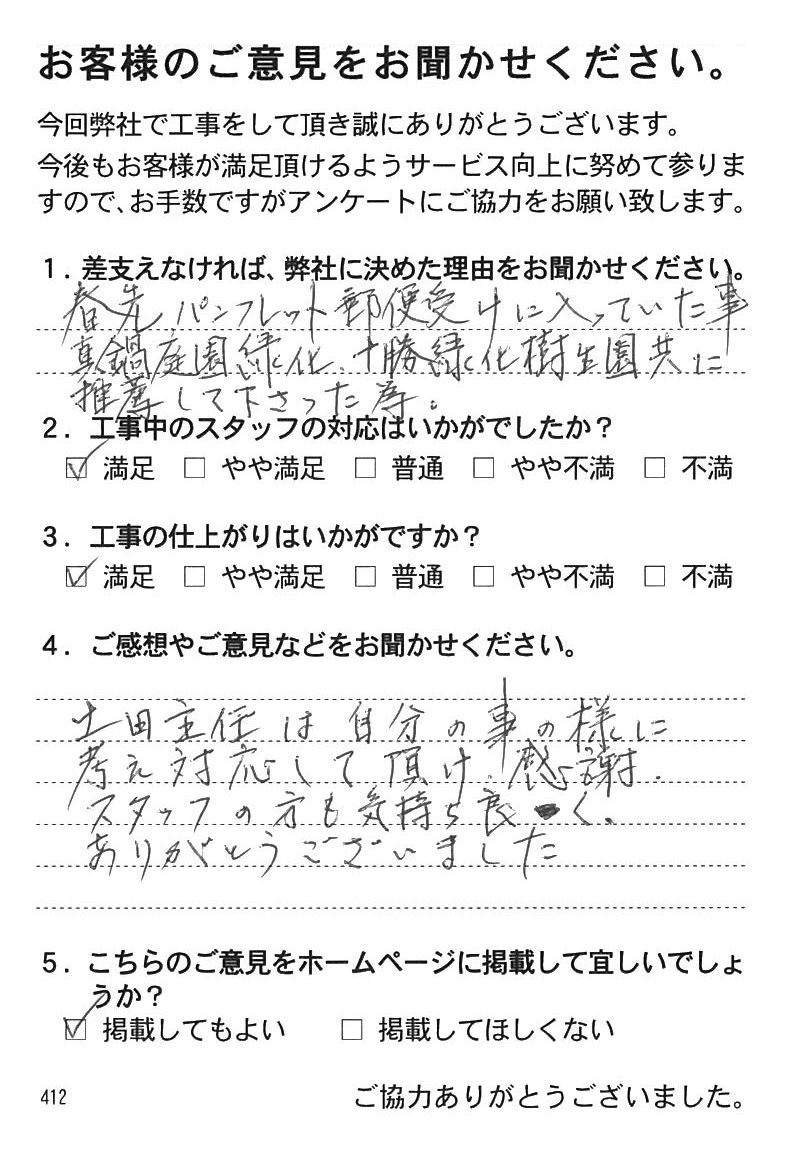 お客様のご意見をお聞かせください。
今回弊社で工事をして頂き誠にありがとうございます。
今後もお客様が満足頂けるようサービス向上に努めて参りま
すので、お手数ですがアンケートにご協力をお願い致します。
1. 差支えなければ、弊社に決めた理由をお聞かせください。
春先パンフレット郵便受けに入っていた事
真鍋庭園緑化、十勝緑化樹生園共に
推薦して下さった為。
2. 工事中のスタッフの対応はいかがでしたか?
☑ 満足 □ やや満足 □ 普通 □ やや不満 □ 不満
3. 工事の仕上がりはいかがですか?
☑ 満足 □ やや満足 □ 普通 □ やや不満 □ 不満
4. ご感想やご意見などをお聞かせください。
土田主任は自分の事の様に
考え対応して頂け、感謝.
スタッフの方も気持ち良く。
ありがとうございました
5. こちらのご意見をホームページに掲載して宜しいでしょ
うか?
☑ 掲載してもよい □ 掲載してほしくない
412 ご協力ありがとうございました。